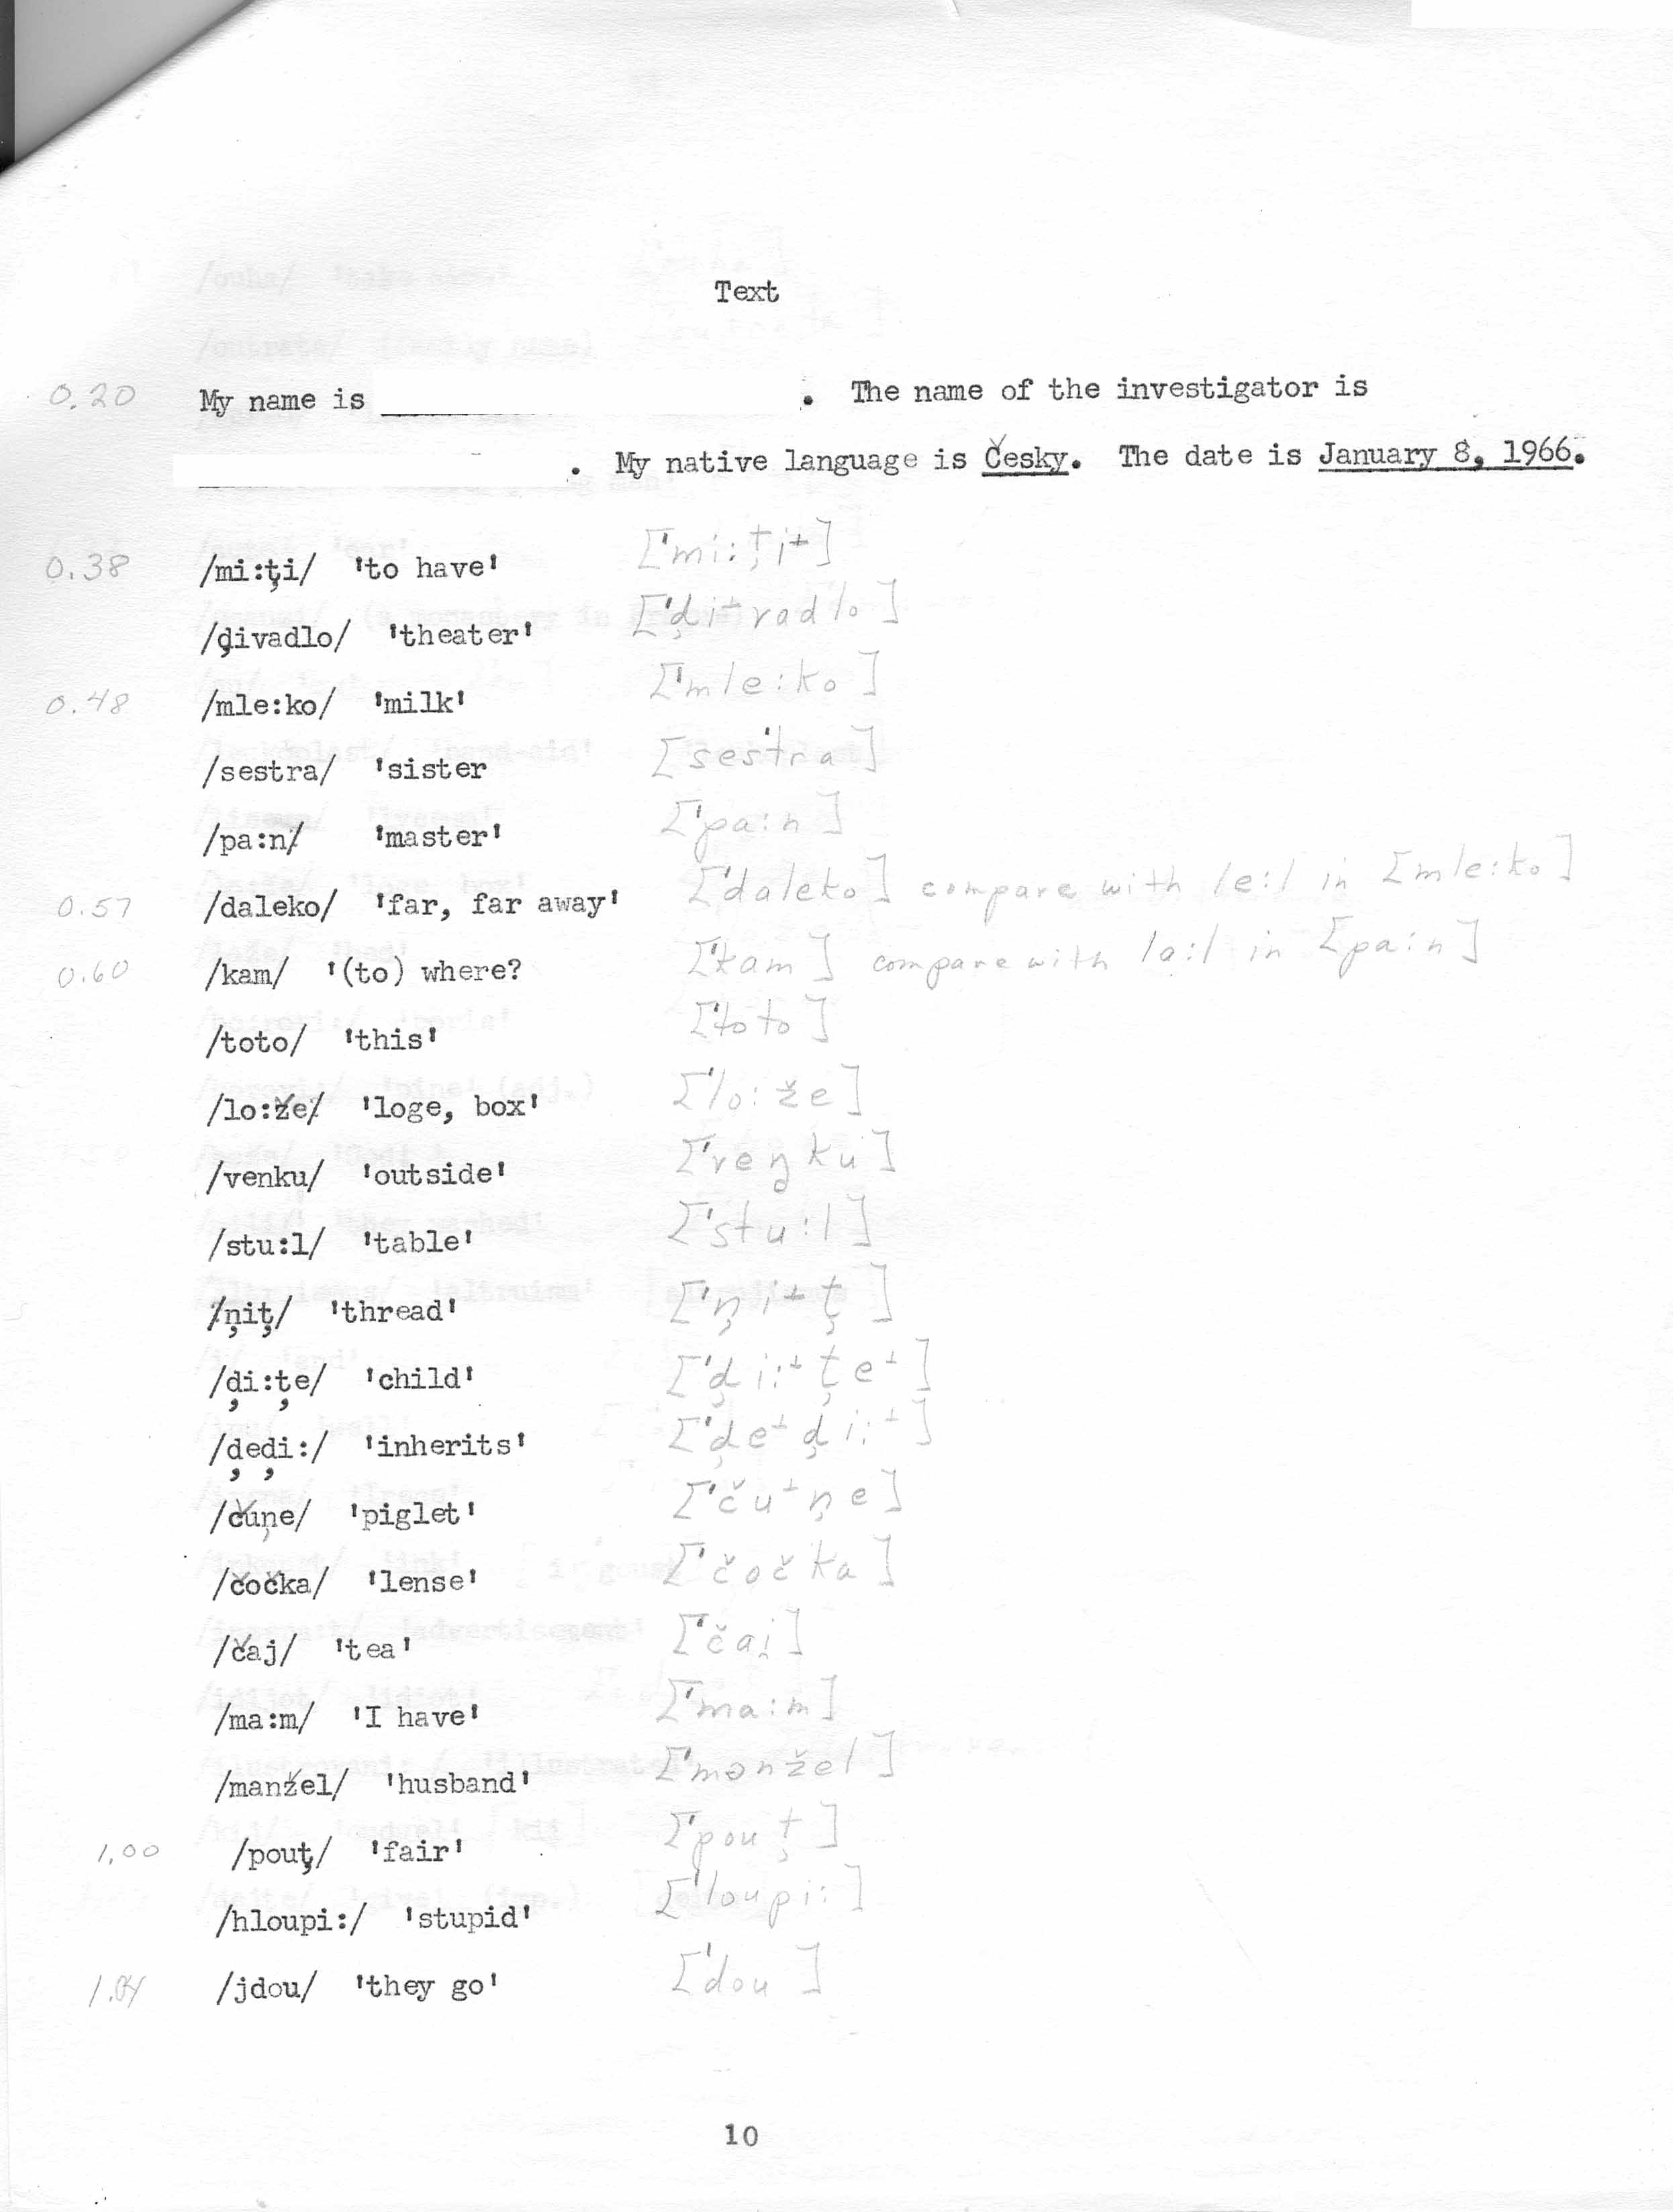 Text
0.20 My name is ____. The name of the investigator is
____. My native language is Česky. The date is January 8, 1966.
0.38 /mi:ţi/ 'to have' ['mi:ţi⊥]
/d̦ivadlo/ 'theater' ['d̦i⊥vadlo]
0.48 /mle:ko/ 'milk' ['mle:ko]
/sestra/ 'sister [ses'tra]
/pa:n/ 'master' ['pa:n]
0.57 /daleko/ 'far, far away' ['daleko] compare with /e:/ in [mle:ko]
0.60 /kam/ '(to) where? ['kam] compare with /a:/ in [pa:n]
/toto/ 'this' ['toto]
/lo:že/ 'loge, box' ['lo:že]
/venku/ 'outside' ['veŋku]
/stu:l/ 'table' ['stu:l]
/ņiţ/ 'thread' ['ņi⊥ţ]
/d̦i:ţe/ 'child' ['d̦i:⊥ţe⊥]
/d̦ed̦i:/ 'inherits' ['d̦e⊥d̦i:⊥]
/čuņe/ 'piglet' ['ču⊥ņe]
/čočka/ 'lense' ['čočka]
/čaj/ 'tea' ['čai̯]
/ma:m/ 'I have' ['ma:m]
/manžel/ 'husband' ['manžel]
1.00 /pouţ/ 'fair' ['pouţ]
/hloupi:/ 'stupid' ['loupi:]
1.04 /jdou/ 'they go' ['dou]
10